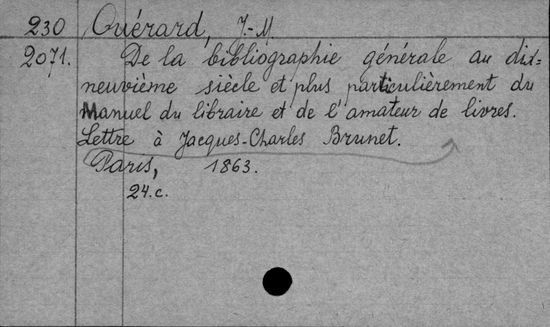 230 Quérard, J.-M
2071. De la bibliographie générale au dix=
neuvième siècle et plus particulièrement du
Manuel du libraire et de l'amateur de livres.
Lettre à Jacques-Charles Brunet.
Paris, 1863.
24.c.